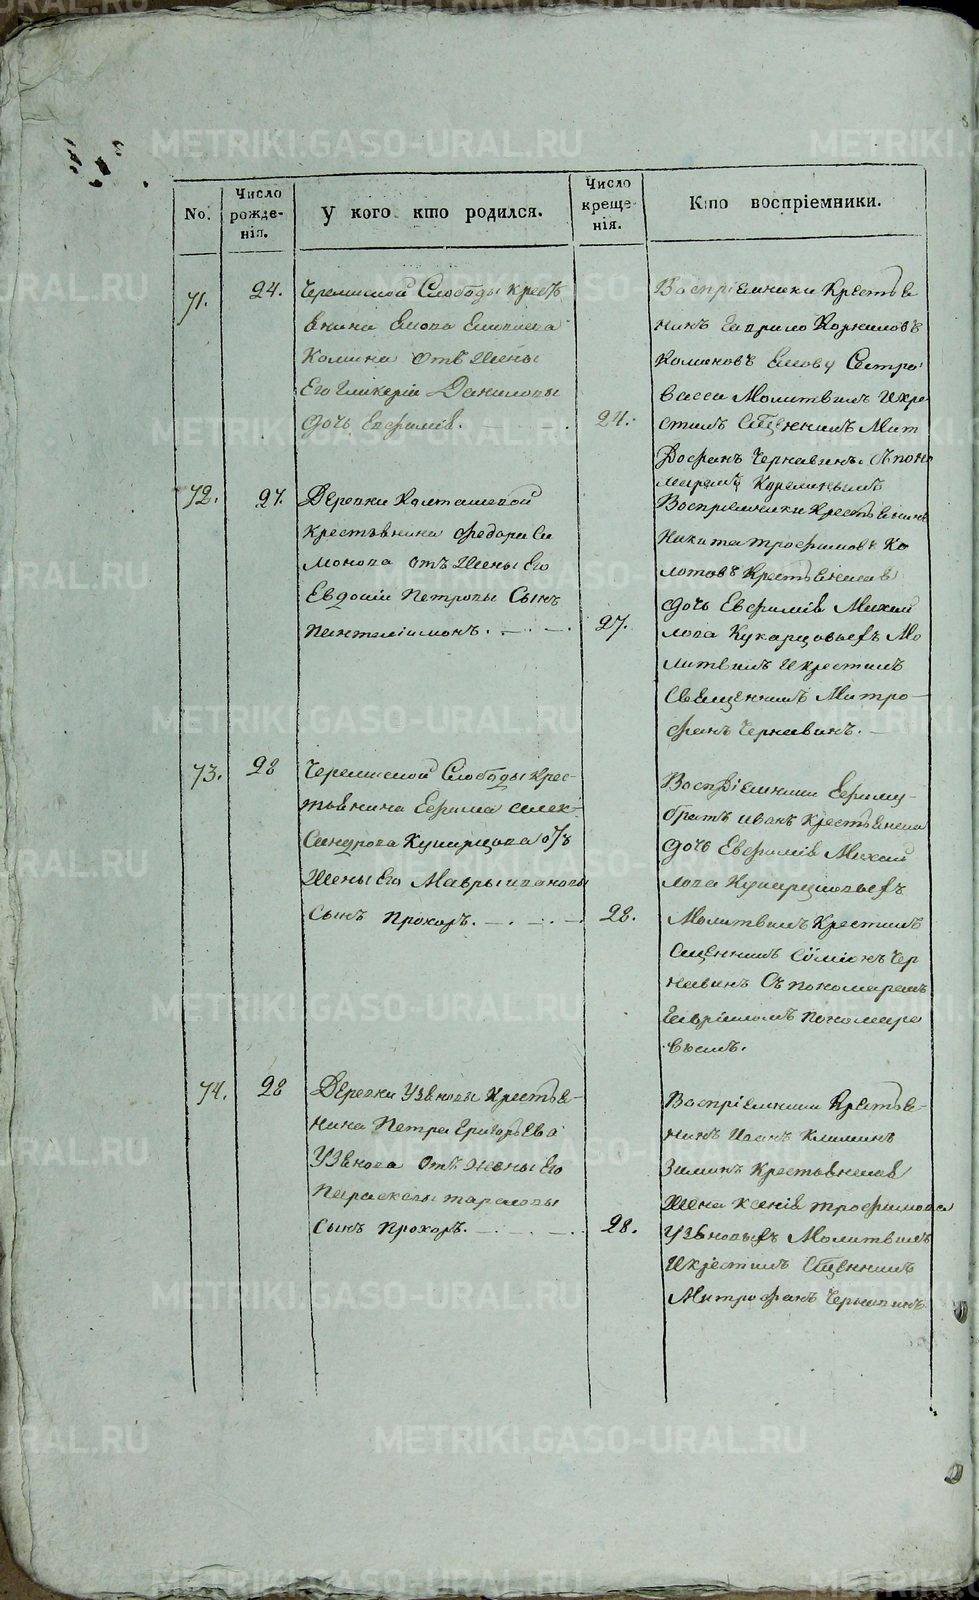 No.
Число
рожде-
нія.
У кого кто родился.
Число
креще-
нія.
Кто воспріемники.
71.
24.
Черемиской Слободы крестъ
Его Гликеріи Даниловы
дочь Евфимія.
24.
Воспріемники Крестьѣ
нинъ Гаврило Корниловъ
Молитвилъ Икре
стилъ Сщенникъ Мит
рофанъ Чернавинъ Спомо
72.
27.
Деревни Колташевой
Крестьянина Федора Си
монова отъ Жены Его
Евдокіи Петровы Сынъ
Пантелиимонъ.
27.
Воспріемники Крестьянинъ
Никита трофимовъ Ко
лотовъ Крестьянина
дочь Евфимія Михай
лова Кукарцовыхъ Мо
литвилъ Икрестилъ
Священникъ Митро-
фанъ Чернавинъ.
73.
28
Черемиской Слободы Крес-
тьянина Ефима Алек-
Сандрова Кукарцова отъ
Жены Его Мавры ивановы
Сынъ Прохоръ.
28.
Воспріемники Ефиму
братъ иванъ Крестьянина
дочь Евфимія Михай
лова Кукарцовыхъ
Молитвилъ Крестилъ
Сщенникъ Симіонъ Чер
навинъ Съ пономаремъ
Гавриломъ Пономаре
вымъ.
74.
28
Деревни Узяновы Крестья-
нина Петра Григорьева
Узянова Отъ Жены Его
Парасковьи тарасовы
Сынъ Прохоръ.
28.
Воспріемники Крестья-
нинъ Иванъ Климинъ
Зиминъ Крестьянина
Жена Ксенія трофимова
Узяновыхъ Молитвилъ
Икрестилъ Сщенникъ
Митрофанъ Чернавинъ
METRIKI.GASO-URAL.RU